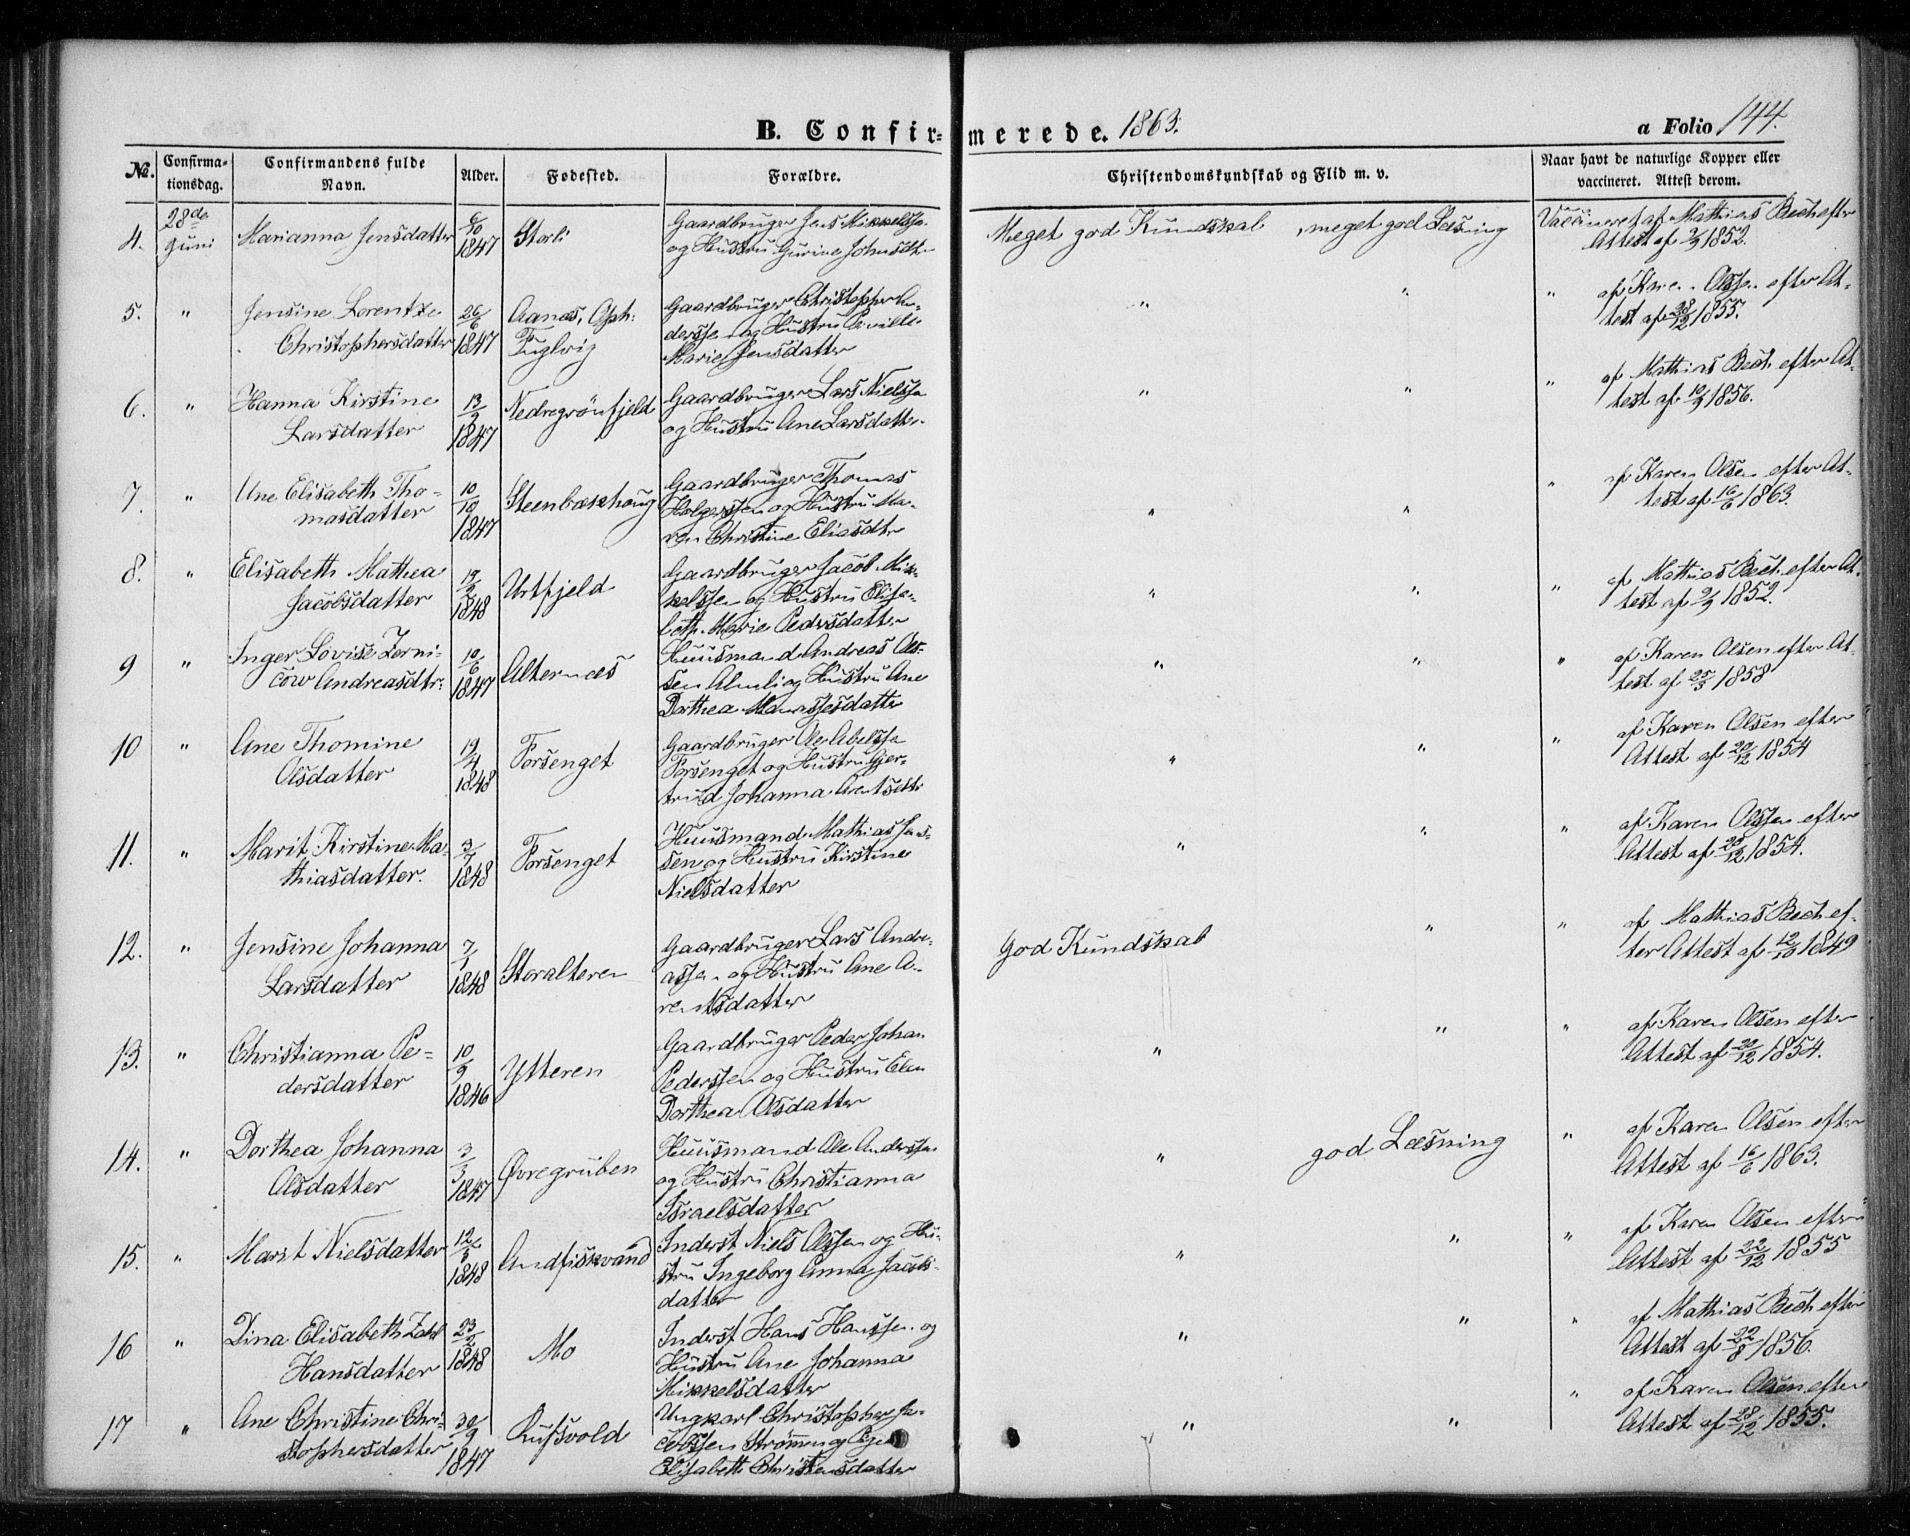 B. Confirmerede. 1863. a Folio 144.
No. Confirmationsdag. Confirmandens fulde Navn. Alder. Fødested. Forældre. Christendomskundskab og Flid m. v. Naar havt de naturlige Kopper eller vaccineret. Attest derom.
4. 28de Juni Marianna Jensdatter 6/10 1847 Storli
Gaardbruger Jens Mikkelssen
og Hustru Gurine Johnsdtr
Meget god Kundskab , meget god Læsning
Vaccineret af Mathias Bech efter
Attest af 2/9 1852.
5. " Jensine Lorentze
Christophersdatter
26/6 1847
Aanæs, Oph:
Fuglvig
Gaardbruger Christopher An-
derssen og Hustru Pernille
Marie Jensdatter
" " "
af Karen Olssen efter At-
test af 28/12 1855.
6. " Hanna Kirstine
Larsdatter
13/9 1847
Nedregrönfjeld
Gaardbruger Lars Nielssen
og Hustru Ane Larsdatter
" " "
af Mathias Bech efter At-
test af 10/9 1856.
7. " Ane Elisabeth Tho-
masdatter
10/10 1847
Steenbækhoug
Gaardbruger Thomas
Holgerssen og Hustru Ma-
ren Christine Eliasdtr
" " "
af Karen Olsen efter At-
test af 16/6 1863.
8. " Elisabeth Mathea
Jacobsdatter
19/2 1848
Urtfjeld
Gaardbruger Jacob Mik-
kelssen og Hustru Elisa-
beth Marie Pedersdatter
" " "
af Mathias Bech efter At-
test af 2/9 1852.
9 " Inger Lovise Zerni-
cow Andreasdtr:
10/6 1847
Alternæs
Huusmand Andreas Ol-
sen Almli og Hustru Ane
Dorthea Manassesdatter
" " "
af Karen Olsen efter At-
test af 25/5 1858
10 " Ane Thomine
Olsdatter
19/4 1848
Forsenget
Gaardbruger Ole Abelssen
Forsenget og Hustru Gjer-
trud Johanna Arentsdtr
" " "
af Karen Olsen efter
Attest af 20/12 1854
11. " Marit Kirstine Ma-
thiasdatter.
3/7 1848
Forsenget
Huusmand Mathias Jen-
sen og Hustru Kirstine
Nielsdatter
" " "
af Karen Olssen efter
Attest af 20/12 1854.
12. " Jensine Johanna
Larsdatter
7/1 1848
Storalteren
Gaardbruger Lars Andre-
assen og Hustru Ane A-
rentsdatter
God Kundskab " "
af Mathias Bech ef-
ter Attest af 12/10 1849
13. " Christianna Pe-
dersdatter
10/9 1846
Ytteren
Gaardbruger Peder Johan
Pederssen og Hustru Elen
Dorthea Olsdatter
" " "
af Karen Olsen efter
Attest af 20/12 1854.
14. " Dorthea Johanna
Olsdatter
3/3 1847
Øvregruben
Huusmand Ole Anderssen
og Hustru Christianna
Israelsdatter
" god Læsning "
af Karen Olsen efter
Attest af 16/6 1863.
15. " Marit Nielsdatter
12/5 1848
Andfiskvand
Inderst Niels Olssen og Hu-
stru Ingeborg Anna Jacobs-
datter
" " "
af Karen Olsen efter
Attest af 22/12 1855
16 " Dina Elisabeth Zahl
Hansdatter
23/2 1848
Mo
Inderst Hans Hanssen og
Hustru Ane Johanna
Mikkelsdatter
" " "
af Mathias Bech efter
Attest af 22/8 1856.
17 " Ane Christine Chri-
stophersdatter
30/9 1847
Rufsvold
Ungkarl Christopher Ja-
cobssen Strömmen og Pigen
Elisabeth Christensdatter
" " "
af Karen Olsen efter
Attest af 28/12 1855.